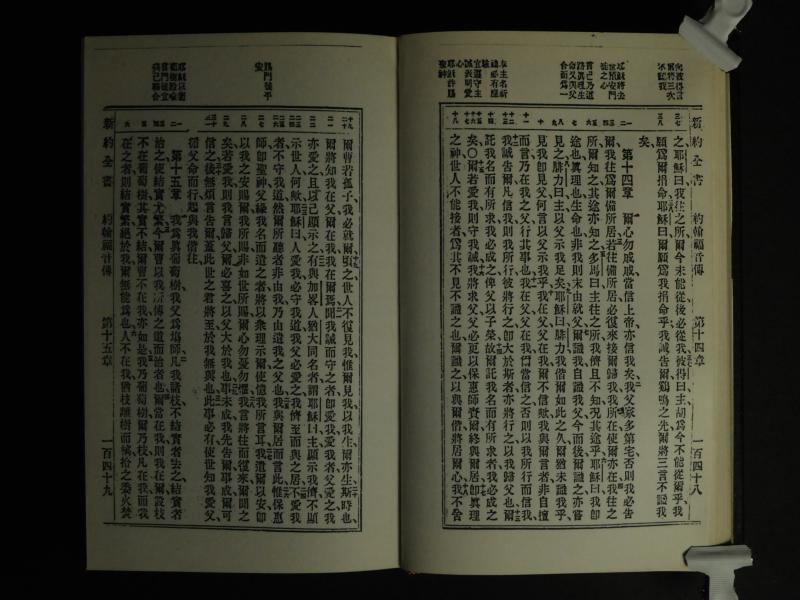 向彼得言
爾將三次
不識我
耶穌將去
往之心
言己乃道
路眞理生
命又與父
合而爲一
奉主名祈
禱必有應
宜遵守主
誡表明愛
心
耶穌許爲
聖神
新約全書 約翰福音傳 第十四章 一百四十八
之、耶穌曰、我往之所、爾今未能從、後必從我、彼得曰、主、胡爲今不能從爾乎、我
願爲爾捐命、耶穌曰、爾願爲我捐命乎、我誠告爾、鷄鳴之先、爾將三言不識我
矣、
第十四章 爾心勿戚戚、當信上帝、亦信我矣、我父家多第宅、否則我必告
爾、我往爲爾備所居、若往備所居、必復來接爾歸我、我所在、使爾亦在、我往之
所爾知之、其途亦知之、多馬曰、主往之所、我儕且不知、況其途乎、耶穌曰、我卽
途也、眞理也、生命也、非我、則末由就父、爾識我、自識我父、今而後、爾識之、亦嘗
見之、腓力曰、主以父示我足矣、耶穌曰、腓力、我偕爾如此之久、爾猶未識我乎、
見我、卽見父、何言以父示我乎、我在父、父在我、爾不信歟、我與爾言者、非自擅
而言、乃在我之父行其事也、我在父、父在我、爾當信之、否則以我所行而信我、
我誠告爾、凡信我、則我所行、彼將行之、卽大於斯者、亦將行之、以我歸父也、爾
託我名而有所求、我必成之、俾父以子榮、故爾託我名而有所求者、我必成之
矣、〇爾若愛我、則守我誡、我將求父、父必更以保惠師賚爾、終與爾居、卽眞理
之神、世人不能接者、爲其不見不識之也、爾識之、以與爾偕、將居爾心、我不舍
賜門徒平
安
爾曹若孤子、我必就爾、頃之世人不復見我、惟爾見我、以我生、爾亦生、斯時也、
爾將知我在父、爾在我、我在爾焉、聞我誡而守之者、卽愛我、愛我者、父愛之、我
亦愛之、且以己顯示之、有與加畧人猶大同名者、謂耶穌曰、主顯示我儕、不顯
示世人、何歟、耶穌曰、人愛我、必守我道、我父必愛之、我儕至、而與之居、不愛我
者、不守我道、然爾所聽者、非由我、乃由遣我之父也、我與爾居、而言此、惟保惠
師、卽聖神、父緣我名而遣之者、將以衆理示爾、使憶我所言耳、我遺爾以安、卽
以我之安賜爾、我所賜、非如世所賜、爾心勿憂勿懼、我言將往而復來、爾聞之
矣、若愛我、則我告歸父、爾必喜之、以父大於我也、事未成、我先告爾、事成、爾可
信之、後無煩言告爾、蓋此世之君將至、於我無與也、此事必有、使世知我愛父、
循父命而行、起、與我偕往、
第十五章 我爲眞葡萄樹、我父爲塲師、凡我諸枝、不結實者去之、結實者
治之、使結實尤繁、今爾曹以我所傳之道而治者也、爾當在我、則我在爾、設枝
不在葡萄樹、其實不結、爾曹不在我、亦如是、我乃葡萄樹、爾乃枝、凡在我、而我
在之者、則結實繁、絕於我、爾無能爲也、人不在我、猶枝離樹而槁、拾之委火焚
新約全書 約翰福音傳 第十五章 一百四十九